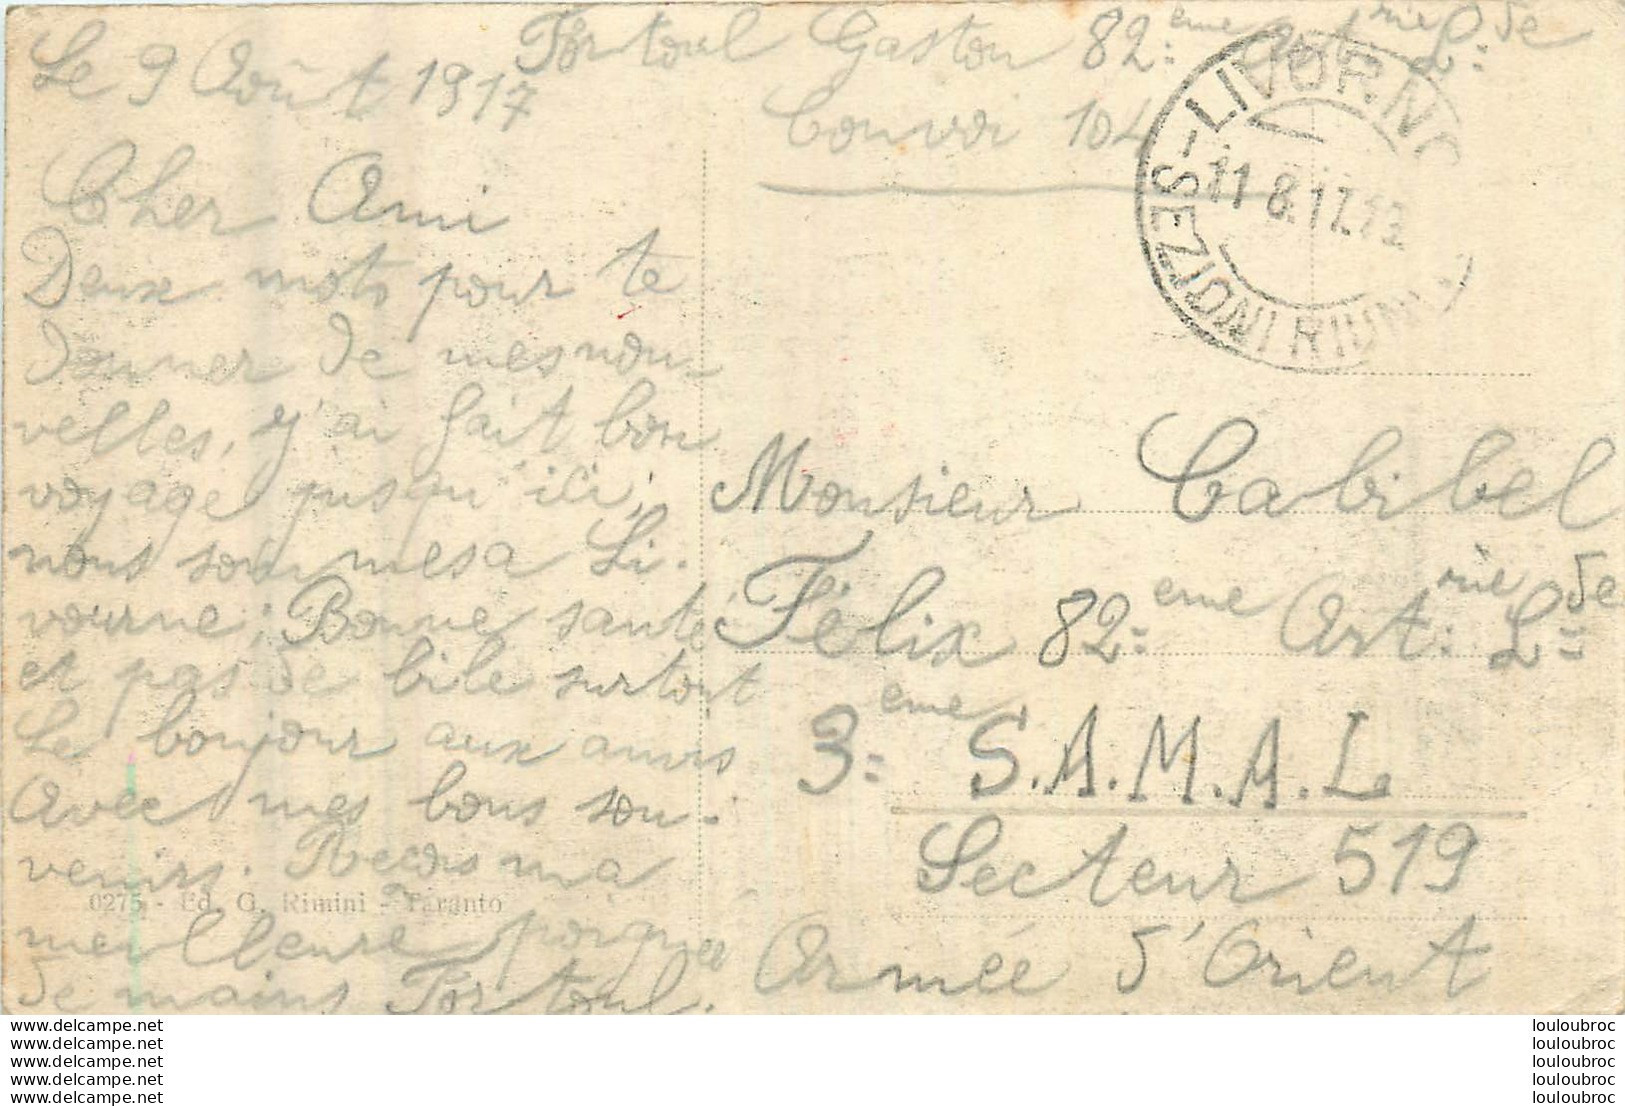 Fortoul Gaston 82=eme Art rie L=de
Convoi 104
Le 9 Août 1917
Cher Ami
Deux mots pour te
donner de mes nou-
velles, j'ai fait bon
voyage jusqu'ici,
nous sommes a Li-
vourne; Bonne santé
et pas de bile surtout
Le bonjour aux amis
Avec mes bons sou-
venirs. Recois ma
meilleure poignée
de mains Fortoul.
LIVORNO
11 8.17.13
SEZIONI RIUNI
Monsieur Cabibel
Félix 82=eme Art:rie L=de
3=eme S.A.M.A.L
Secteur 519
Armée d'Orient
0275 - Ed. G. Rimini - Taranto
www.delcampe.net
www.delcampe.net
www.delcampe.net
www.delcampe.net
www.delcampe.net
louloubroc
louloubroc
louloubroc
louloubroc
louloubroc